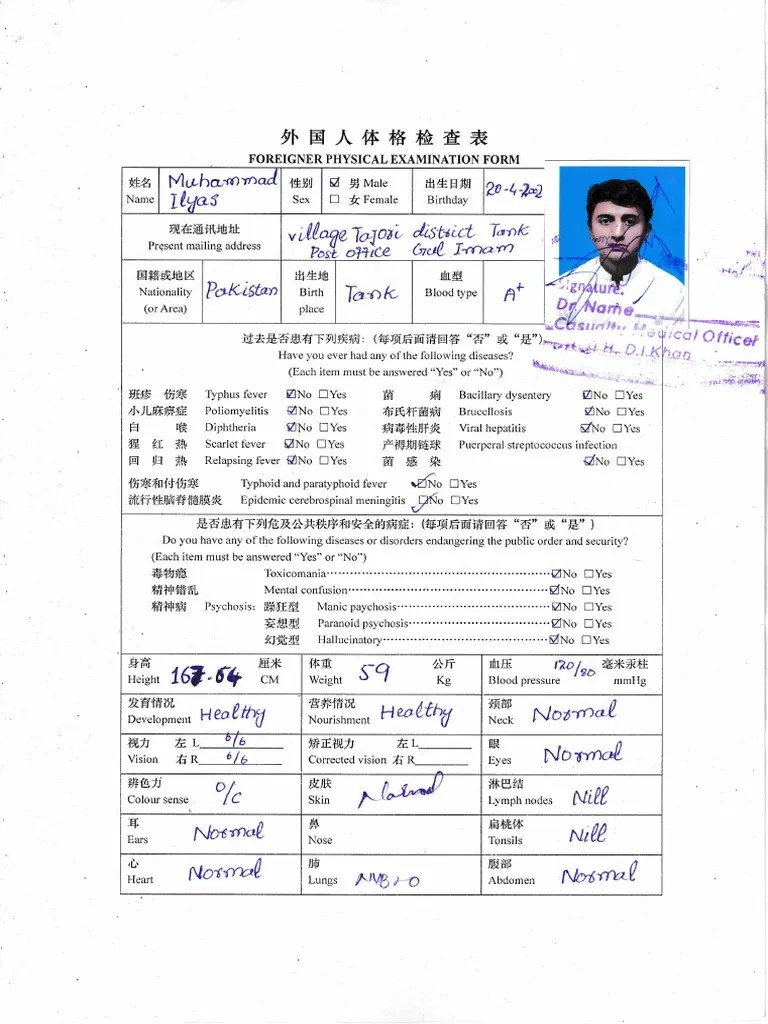 外国人体格检查表
FOREIGNER PHYSICAL EXAMINATION FORM
姓名 Name Muhammad Ilyas 性别 Sex ☑ 男 Male ☐ 女 Female 出生日期 Birthday 20-4-2002
现在通讯地址 Present mailing address village Tajori district Tank
Post office Gul Imam
国籍或地区 Nationality (or Area) Pakistan 出生地 Birth place Tank 血型 Blood type A+
Signature.
Dr. Name
Casualty Medical Officer
H. D.I.Khan
过去是否患有下列疾病:(每项后面请回答“否”或“是”)
Have you ever had any of the following diseases?
(Each item must be answered “Yes” or “No”)
班疹 伤寒 Typhus fever ☑No ☐Yes 菌 痢 Bacillary dysentery ☑No ☐Yes
小儿麻痹症 Poliomyelitis ☑No ☐Yes 布氏杆菌病 Brucellosis ☑No ☐Yes
白 喉 Diphtheria ☑No ☐Yes 病毒性肝炎 Viral hepatitis ☑No ☐Yes
猩 红 热 Scarlet fever ☑No ☐Yes 产褥期链球 Puerperal streptococcus infection
回 归 热 Relapsing fever ☑No ☐Yes 菌 感 染 ☑No ☐Yes
伤寒和付伤寒 Typhoid and paratyphoid fever ☑No ☐Yes
流行性脑脊髓膜炎 Epidemic cerebrospinal meningitis ☑No ☐Yes
是否患有下列危及公共秩序和安全的病症:(每项后面请回答“否”或“是”)
Do you have any of the following diseases or disorders endangering the public order and security?
(Each item must be answered “Yes” or “No”)
毒物瘾 Toxicomania ☑No ☐Yes
精神错乱 Mental confusion ☑No ☐Yes
精神病 Psychosis: 躁狂型 Manic psychosis ☑No ☐Yes
妄想型 Paranoid psychosis ☑No ☐Yes
幻觉型 Hallucinatory ☑No ☐Yes
身高 厘米 体重 公斤 血压 120/80 毫米汞柱
Height 167.64 CM Weight 59 Kg Blood pressure mmHg
发育情况 营养情况 颈部
Development Healthy Nourishment Healthy Neck Normal
视力 左 L 6/6 矫正视力 左 L 眼
Vision 右 R 6/6 Corrected vision 右 R Eyes Normal
辨色力 皮肤 淋巴结
Colour sense O/C Skin Normal Lymph nodes Nill
耳 鼻 扁桃体
Ears Normal Nose Tonsils Nill
心 肺 腹部
Heart Normal Lungs Abdomen Normal